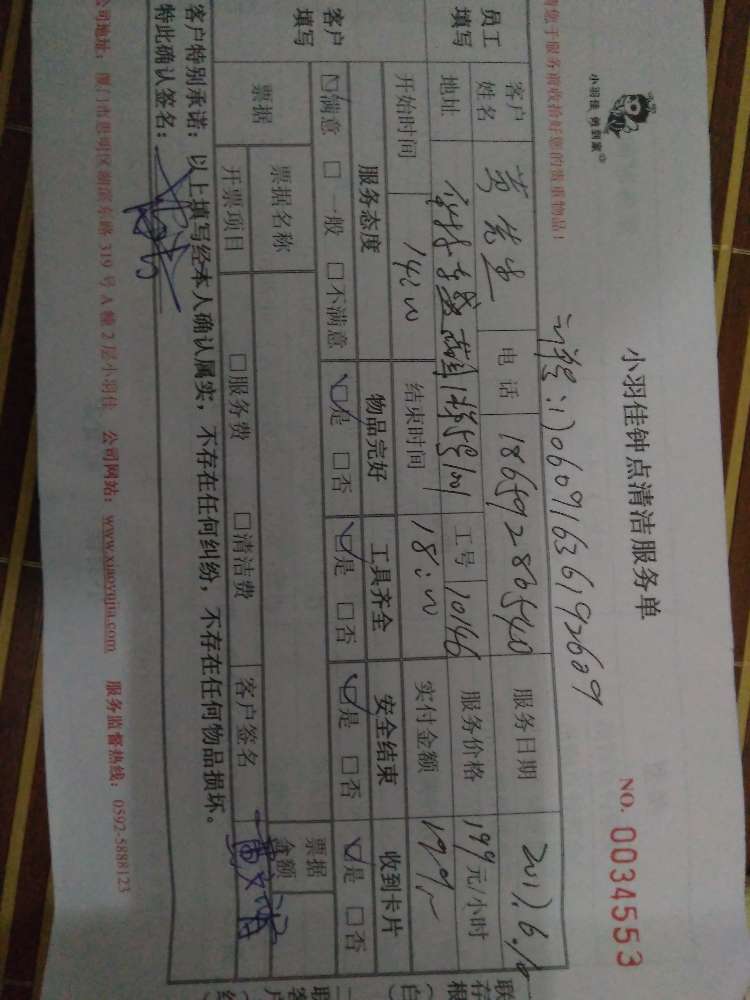 小羽佳 劳到家
小羽佳钟点清洁服务单
NO. 0034553
您于服务前收拾好您的贵重物品！
1)06091636192609
员工填写
客户姓名 黄先生 电话 18659286540 服务日期 2017.6.10
地址 1001 工号 10146 服务价格 199元/小时
开始时间 14:00 结束时间 18:00 实付金额 199
客户填写
服务态度 物品完好 工具齐全 安全结束 收到卡片
☑满意 □一般 □不满意 ☑是 □否 ☑是 □否 ☑是 □否 ☑是 □否
票据 票据名称 票据金额
开票项目 □服务费 □清洁费 客户签名
客户特别承诺：以上填写经本人确认属实，不存在任何纠纷，不存在任何物品损坏。
特此确认签名：
公司地址：厦门市思明区湖滨东路319号A幢2层小羽佳 公司网站：www.xiaoyujia.com 服务监督热线：0592-5888123